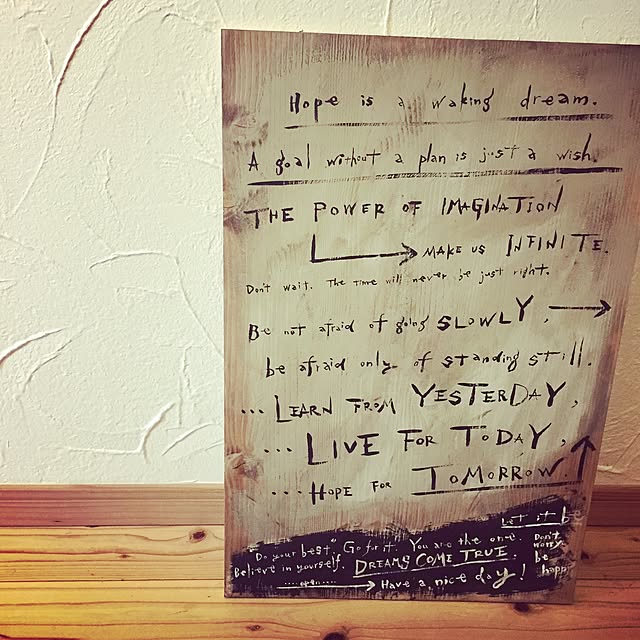 Hope is a waking dream.
A goal without a plan is just a wish.
THE POWER OF IMAGINATION
MAKE US INFINITE.
Don't wait. The time will never be just right.
Be not afraid of going SLOWLY,
be afraid only of standing still.
... LEARN FROM YESTERDAY,
... LIVE FOR TODAY,
... HOPE FOR TOMORROW.
Let it be
"Do your best." Go for it. You are the one. Don't worry
Believe in yourself. DREAMS COME TRUE. be happy
Have a nice day!